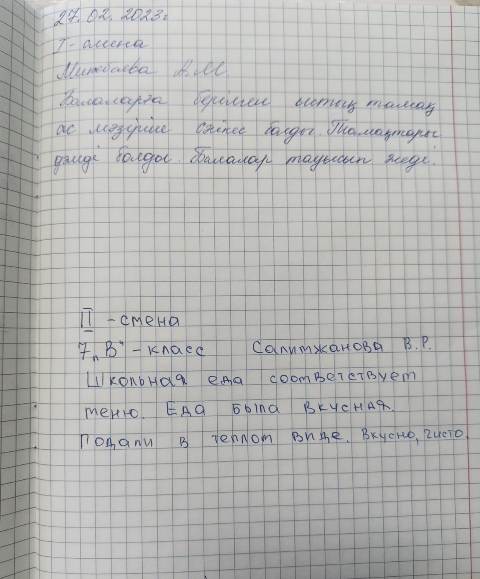 27.02.2023г
I - смена
Минбаева А.М.
Балаларға берілген ыстық тамақ
ас мәзіріне сәйкес болды. Тамақтары
дәмді болды. Балалар тауысып жеді.
II - смена
7 „В" - класс Салимжанова В.Р.
Школьная еда соответствует
меню. Еда была вкусная.
Подали в теплом виде. Вкусно, чисто.